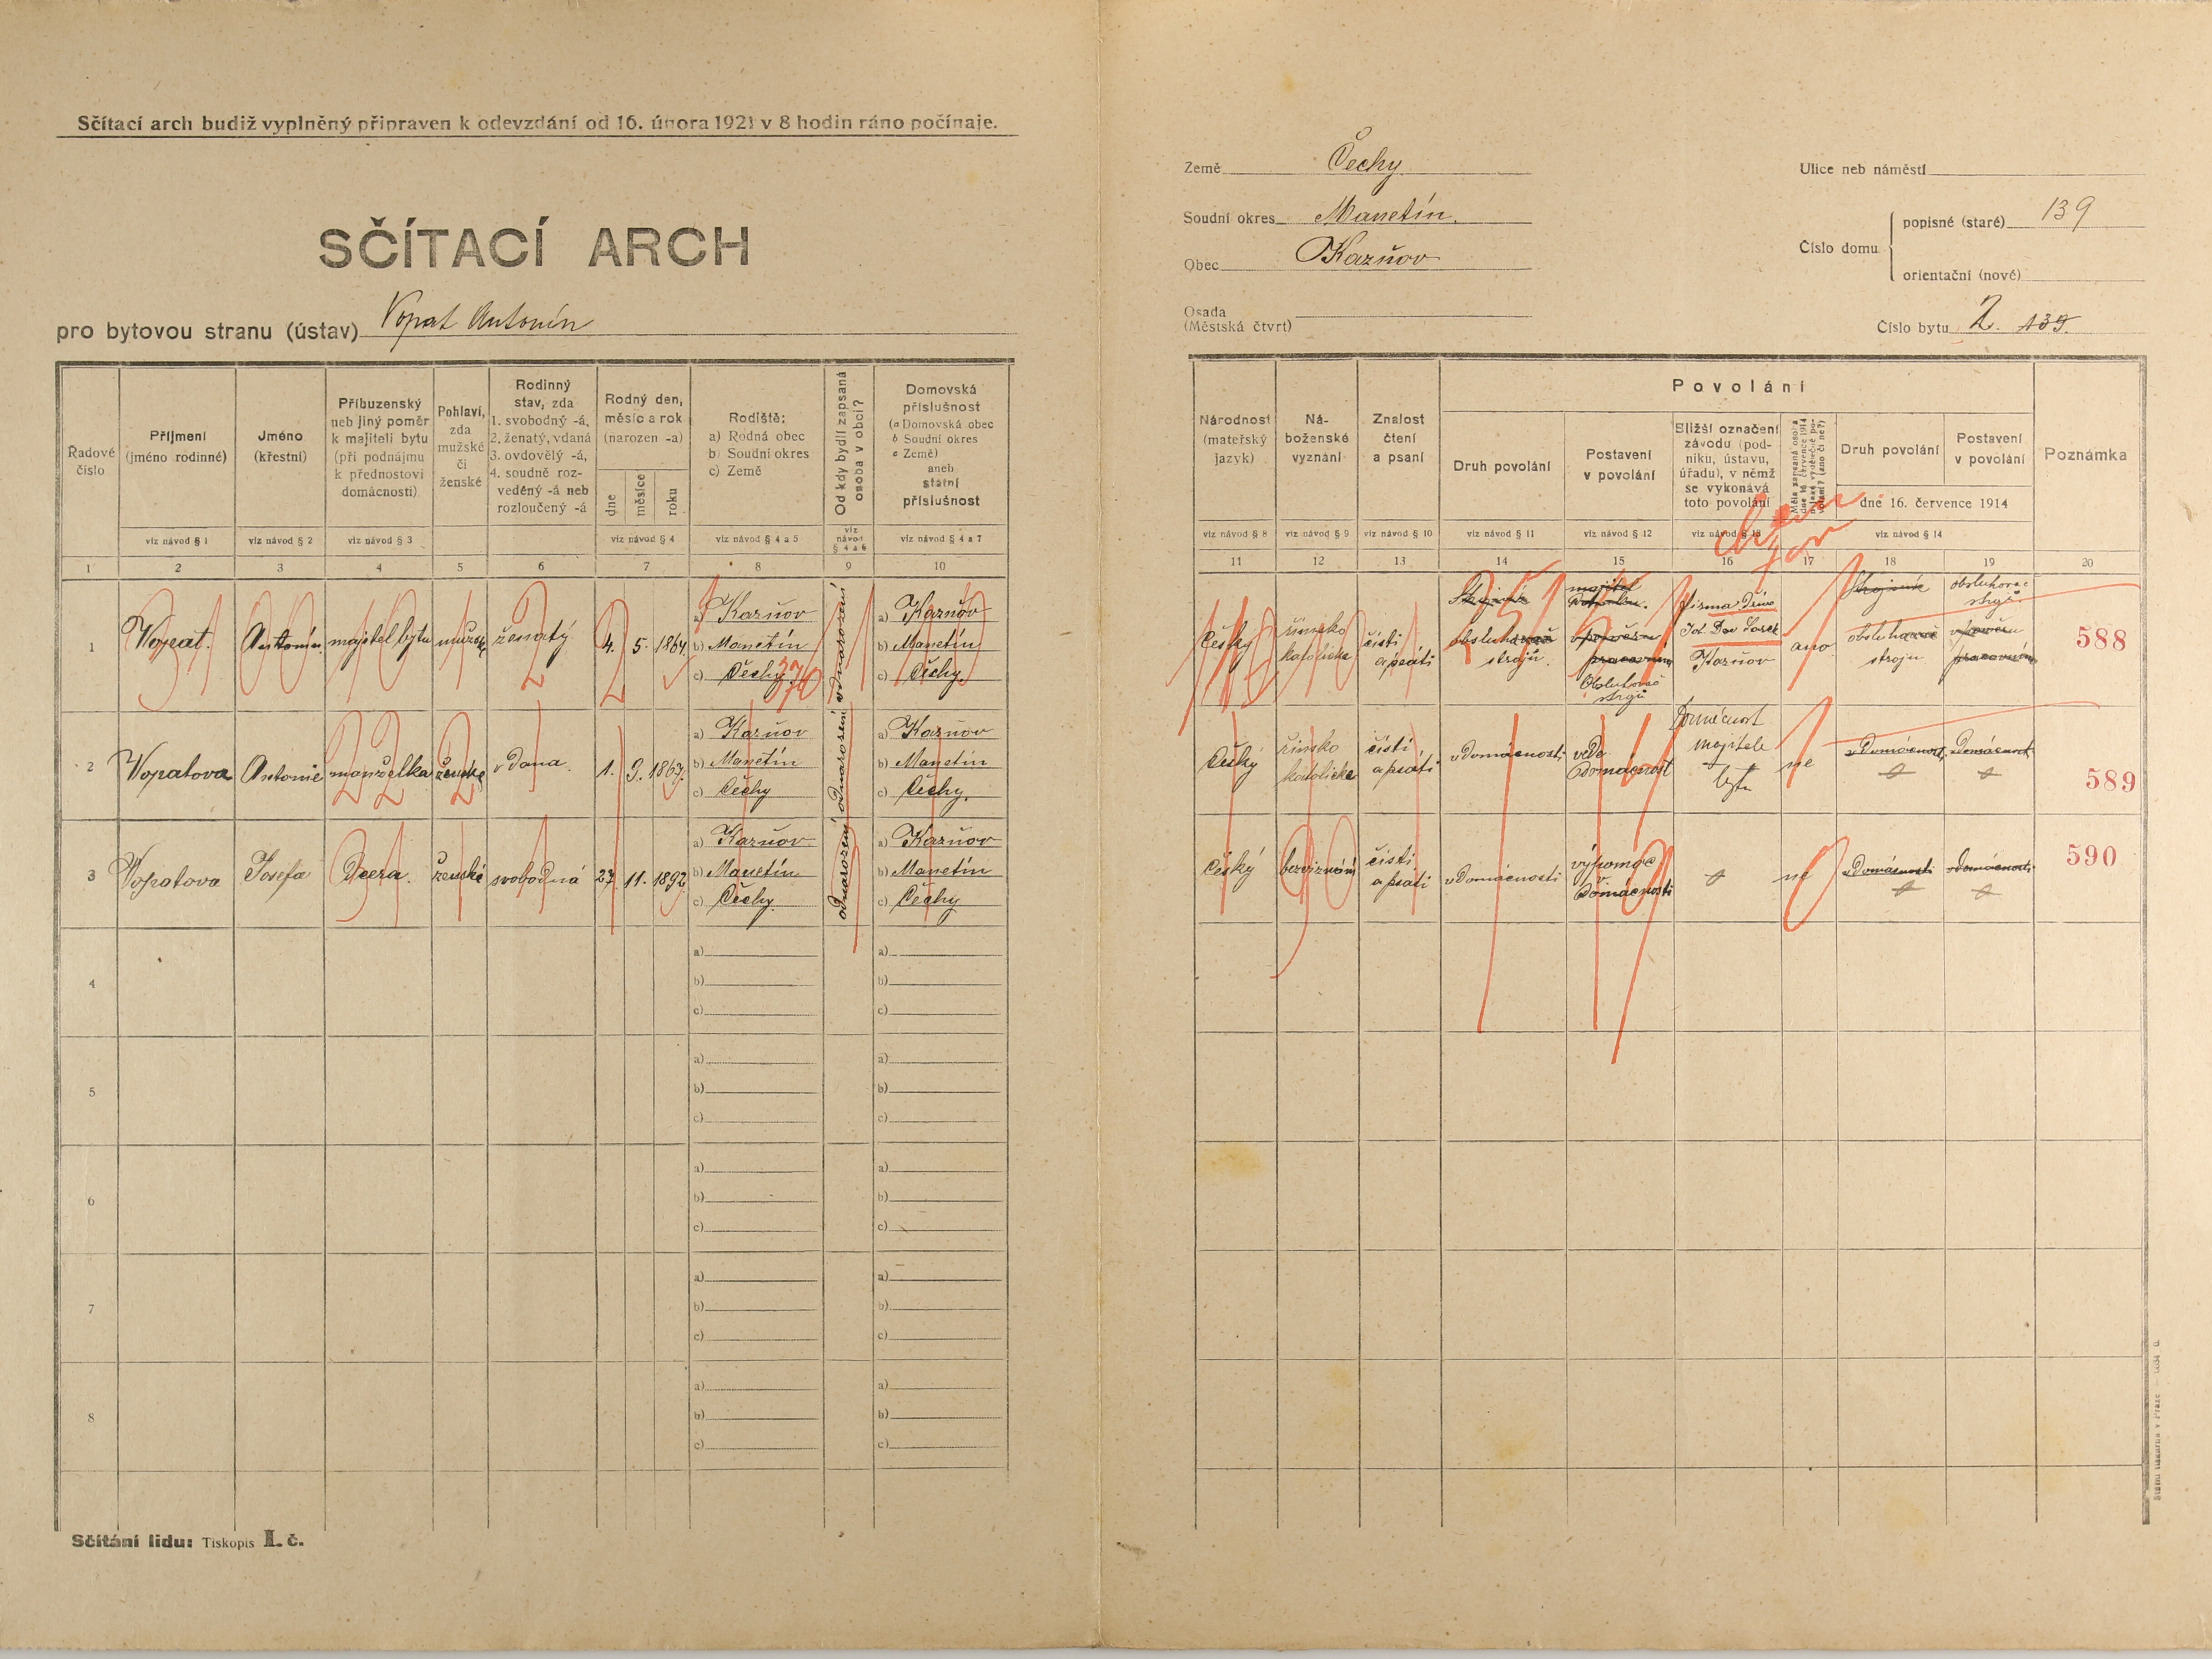 Sčítací arch budiž vyplněný připraven k odevzdání od 16. února 1921 v 8 hodin ráno počínaje.
SČÍTACÍ ARCH
pro bytovou stranu (ústav) Vopat Antonín
Země Čechy
Soudní okres Manetín.
Obec Kazňov
Osada
(Městská čtvrt)
Ulice neb náměstí
Číslo domu
popisné (staré) 139
orientační (nové)
Číslo bytu 2. 139.
Řadové číslo
Příjmení (jméno rodinné)
viz návod § 1
Jméno (křestní)
viz návod § 2
Příbuzenský neb jiný poměr k majiteli bytu (při podnájmu k přednostovi domácnosti)
viz návod § 3
Pohlaví, zda mužské či ženské
Rodinný stav, zda
1. svobodný -á,
2. ženatý, vdaná
3. ovdovělý -á,
4. soudně rozvedený -á neb rozloučený -á
Rodný den, měsíc a rok (narozen -a)
dne
měsíce
roku
viz návod § 4
Rodiště:
a) Rodná obec
b) Soudní okres
c) Země
viz návod § 4 a 5
Od kdy bydlí zapsaná osoba v obci?
viz návod § 4 a 6
Domovská příslušnost
(a Domovská obec
b Soudní okres
c Země)
aneb
státní příslušnost
viz návod § 4 a 7
Národnost (mateřský jazyk)
viz návod § 8
Náboženské vyznání
viz návod § 9
Znalost čtení a psaní
viz návod § 10
Povolání
Druh povolání
viz návod § 11
Postavení v povolání
viz návod § 12
Bližší označení závodu (podniku, ústavu, úřadu), v němž se vykonává toto povolání
viz návod § 13
Druh povolání
Postavení v povolání
dne 16. července 1914
viz návod § 14
Poznámka
1 2 3 4 5 6 7 8 9 10 11 12 13 14 15 16 17 18 19 20
1 Vopat. Antonín. majitel bytu mužské ženatý 4. 5. 1864.
a) Kazňov
b) Manetín
c) Čechy
370
od narození
a) Kazňov
b) Manetín
c) Čechy
český
římsko katolické
čísti a psáti
obsluhovač strojů.
Obsluhovač strojů
Firma
Kazňov
ano
obsluhovač stroju
obsluhovač strojů.
588
2 Vopatova Antonie manželka ženské vdana. 1. 9. 1867.
a) Kazňov
b) Manetín
c) Čechy
od narození
a) Kazňov
b) Manetín
c) Čechy.
český
římsko katolické
čísti a psáti
v domácnosti
vede domácnost
domácnost majitele bytu
ne
v domácnosti
v domácnosti
589
3 Vopatova Josefa Dcera. ženské svobodná 27. 11. 1892
a) Kazňov
b) Manetín
c) Čechy.
od narození
a) Kazňov
b) Manetín
c) Čechy
český
bezvyznání
čísti a psati
v domácnosti
výpomoc v domácnosti
ne
v domácnosti
v domácnosti
590
4
a)
b)
c)
a)
b)
c)
5
a)
b)
c)
a)
b)
c)
6
a)
b)
c)
a)
b)
c)
7
a)
b)
c)
a)
b)
c)
8
a)
b)
c)
a)
b)
c)
Sčítání lidu: Tiskopis I. č.